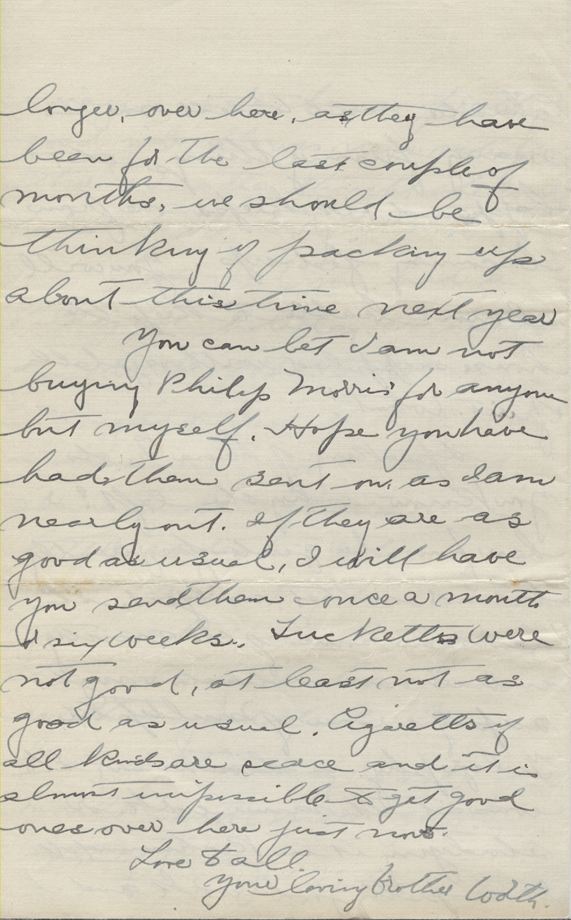 longer, over here, as they have
been for the last couple of
months, we should be
thinking of packing up
about this time next year
You can bet I am not
buying Philip Morris for anyone
but myself. Hope you have
had them sent on, as I am
nearly out. If they are as
good as usual, I will have
you send them once a month
or six weeks. Tucketts were
not good, at least not as
good as usual. Cigaretts of
all kinds are scace and it is
almost impossible to get good
ones over here just now.
Love to all.
Your loving brother